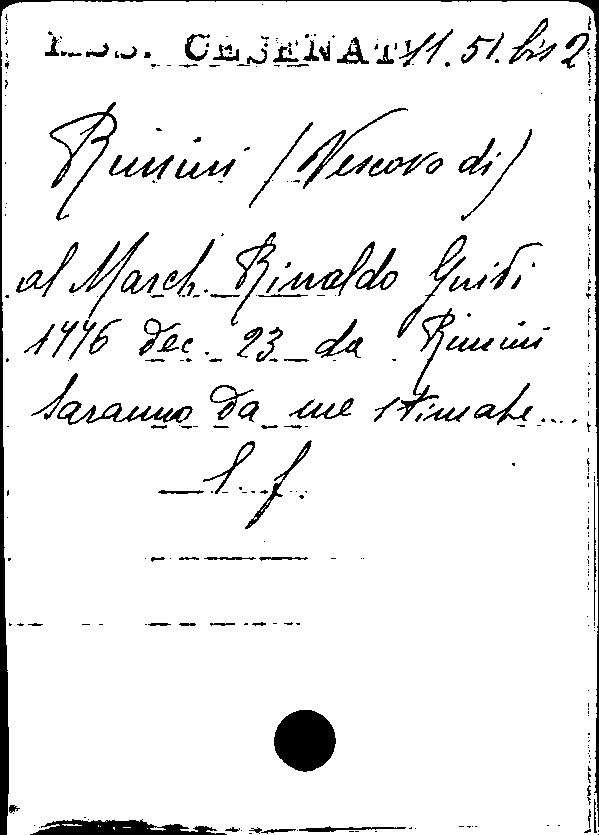 MSS. CESENATI 11.51.bis 2
Rimini (Vescovo di)
al March. Rinaldo Guidi
1776 dec. 23 da Rimini
Saranno da me stimate...
l. f.